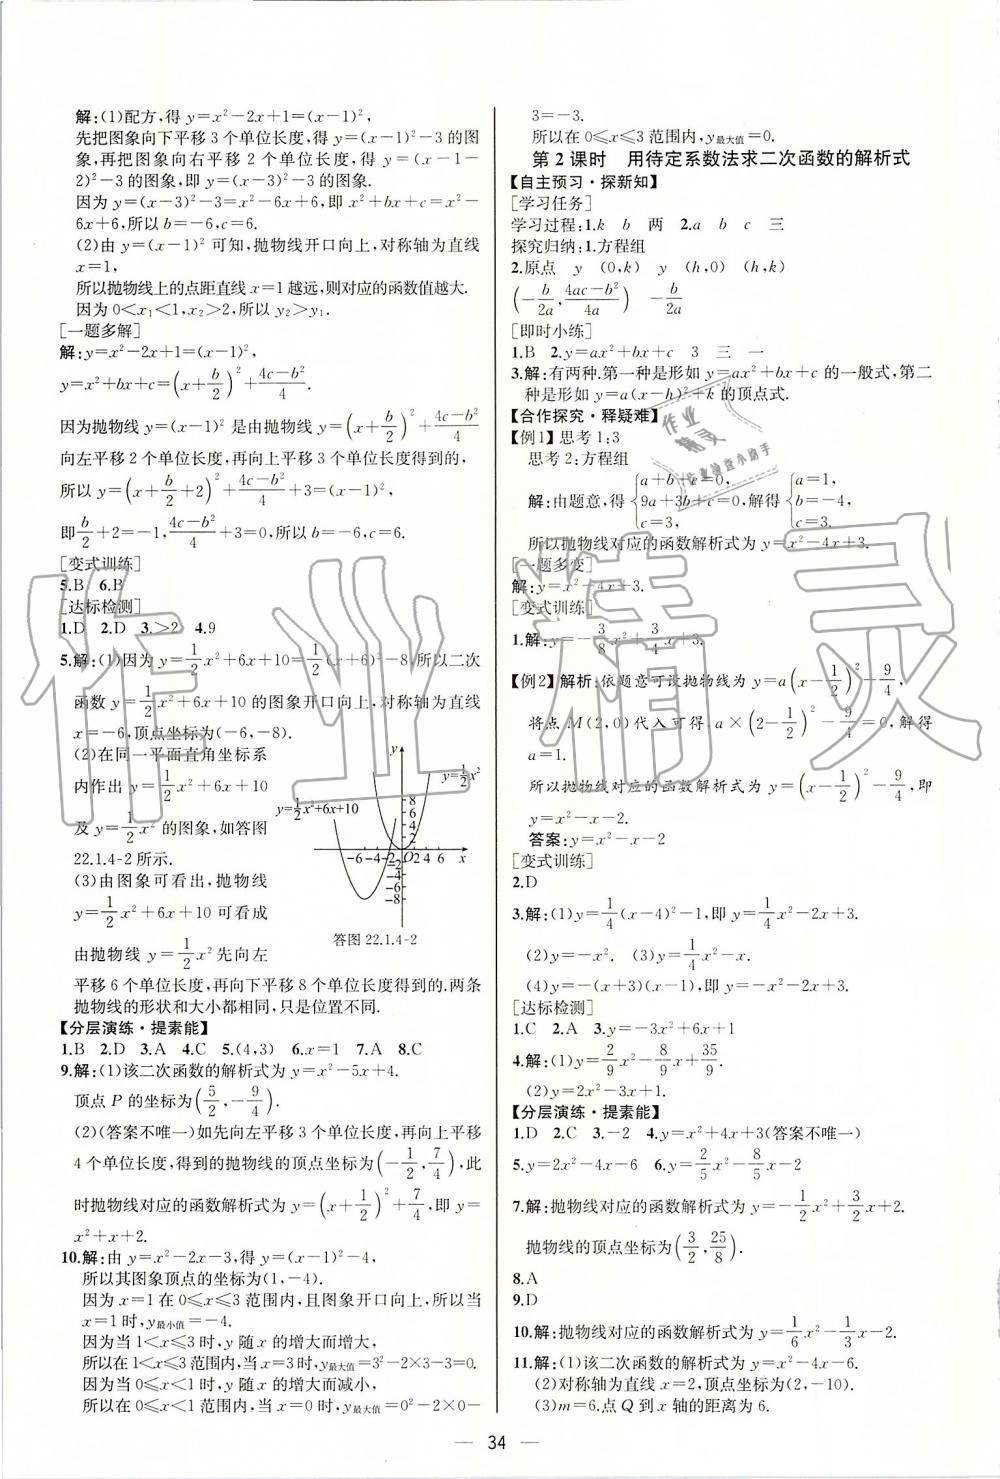 解:(1)配方,得 y=x²-2x+1=(x-1)²,
先把图象向下平移 3 个单位长度,得 y=(x-1)²-3 的图
象,再把图象向右平移 2 个单位长度,得 y=(x-1-
2)²-3 的图象,即 y=(x-3)²-3 的图象.
因为 y=(x-3)²-3=x²-6x+6,即 x²+bx+c=x²-
6x+6,所以 b=-6,c=6.
(2)由 y=(x-1)² 可知,抛物线开口向上,对称轴为直线
x=1,
所以抛物线上的点距直线 x=1 越远,则对应的函数值越大.
因为 0<x₁<1,x₂>2,所以 y₂>y₁.
[一题多解]
解:y=x²-2x+1=(x-1)²,
y=x²+bx+c=(x+b/2)²+(4c-b²)/4.
因为抛物线 y=(x-1)² 是由抛物线 y=(x+b/2)²+(4c-b²)/4
向左平移 2 个单位长度,再向上平移 3 个单位长度得到的,
所以 y=(x+b/2+2)²+(4c-b²)/4+3=(x-1)²,
即 b/2+2=-1,(4c-b²)/4+3=0,所以 b=-6,c=6.
[变式训练]
5.B 6.B
[达标检测]
1.D 2.D 3.>2 4.9
5.解:(1)因为 y=1/2x²+6x+10=1/2(x+6)²-8,所以二次
函数 y=1/2x²+6x+10 的图象开口向上,对称轴为直线
x=-6,顶点坐标为(-6,-8).
(2)在同一平面直角坐标系
内作出 y=1/2x²+6x+10
及 y=1/2x² 的图象,如答图
22.1.4-2 所示.
(3)由图象可看出,抛物线
y=1/2x²+6x+10 可看成
由抛物线 y=1/2x² 先向左
y
y=1/2x²
y=1/2x²+6x+10
8
6
4
2
-6-4-2 O 2 4 6 x
-2
-4
-6
-8
答图 22.1.4-2
平移 6 个单位长度,再向下平移 8 个单位长度得到的.两条
抛物线的形状和大小都相同,只是位置不同.
【分层演练·提素能】
1.B 2.D 3.A 4.C 5.(4,3) 6.x=1 7.A 8.C
9.解:(1)该二次函数的解析式为 y=x²-5x+4.
顶点 P 的坐标为(5/2,-9/4).
(2)(答案不唯一)如先向左平移 3 个单位长度,再向上平移
4 个单位长度,得到的抛物线的顶点坐标为(-1/2,7/4),此
时抛物线对应的函数解析式为 y=(x+1/2)²+7/4,即 y=
x²+x+2.
10.解:由 y=x²-2x-3,得 y=(x-1)²-4,
所以其图象顶点的坐标为(1,-4).
因为 x=1 在 0≤x≤3 范围内,且图象开口向上,所以当
x=1 时,y最小值=-4.
因为当 1<x≤3 时,y 随 x 的增大而增大,
所以在 1<x≤3 范围内,当 x=3 时,y最大值=3²-2×3-3=0.
因为当 0≤x<1 时,y 随 x 的增大而减小,
所以在 0≤x<1 范围内,当 x=0 时,y最大值=0²-2×0-
3=-3.
所以在 0≤x≤3 范围内,y最大值=0.
第 2 课时 用待定系数法求二次函数的解析式
【自主预习·探新知】
[学习任务]
学习过程:1.k b 两 2.a b c 三
探究归纳:1.方程组
2.原点 y (0,k) y (h,0) (h,k)
(-b/2a,(4ac-b²)/4a) -b/2a
[即时小练]
1.B 2.y=ax²+bx+c 3 三 一
3.解:有两种.第一种是形如 y=ax²+bx+c 的一般式,第二
种是形如 y=a(x-h)²+k 的顶点式.
【合作探究·释疑难】
【例1】思考 1:3
思考 2:方程组
解:由题意,得{a+b+c=0, 9a+3b+c=0, c=3, 解得{a=1, b=-4, c=3.
所以抛物线对应的函数解析式为 y=x²-4x+3.
[一题多变]
解:y=x²-4x+3.
[变式训练]
1.解:y=-3/8x²+3/4x+3.
【例2】解析:依题意可设抛物线为 y=a(x-1/2)²-9/4,
将点 M(2,0)代入可得 a×(2-1/2)²-9/4=0,解得
a=1.
所以抛物线对应的函数解析式为 y=(x-1/2)²-9/4,即
y=x²-x-2.
答案:y=x²-x-2
[变式训练]
2.D
3.解:(1)y=1/4(x-4)²-1,即 y=1/4x²-2x+3.
(2)y=-x². (3)y=1/4x²-x.
(4)y=-(x+3)(x-1),即 y=-x²-2x+3.
[达标检测]
1.C 2.A 3.y=-3x²+6x+1
4.解:(1)y=2/9x²-8/9x+35/9.
(2)y=2x²-3x+1.
【分层演练·提素能】
1.D 2.C 3.-2 4.y=x²+4x+3(答案不唯一)
5.y=2x²-4x-6 6.y=2/5x²-8/5x-2
7.解:抛物线对应的函数解析式为 y=-1/2x²+3/2x+2.
抛物线的顶点坐标为(3/2,25/8).
8.A
9.D
10.解:抛物线对应的函数解析式为 y=1/6x²-1/3x-2.
11.解:(1)该二次函数的解析式为 y=x²-4x-6.
(2)对称轴为直线 x=2,顶点坐标为(2,-10).
(3)m=6.点 Q 到 x 轴的距离为 6.
— 34 —
作业精灵
作业
精灵
作业检查小助手